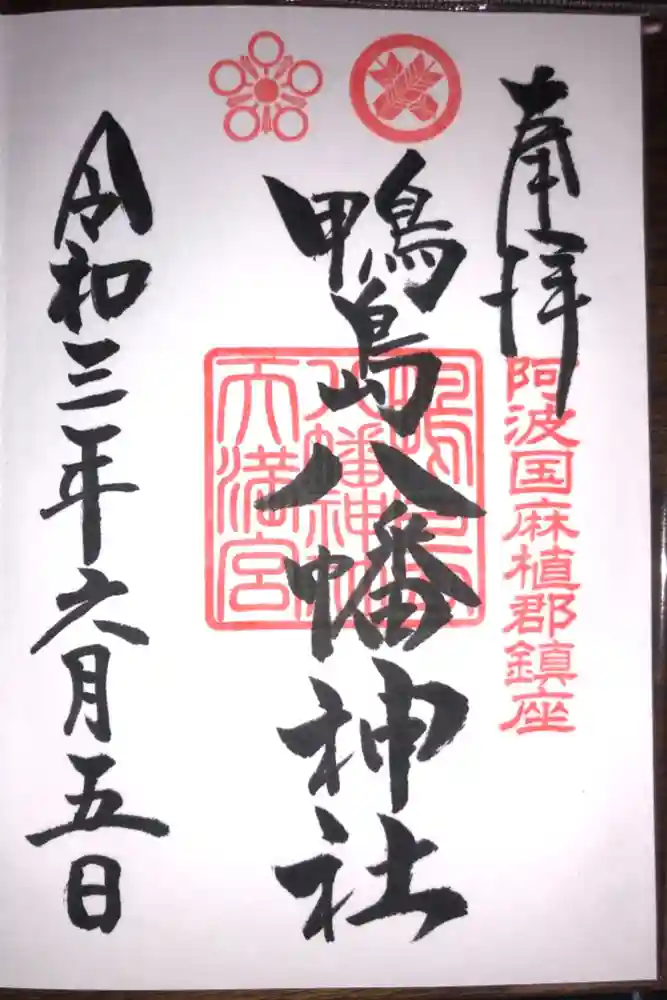 奉拝
阿波国麻植郡鎮座
鴨島八幡神社
八幡神社
天満宮
令和三年六月五日